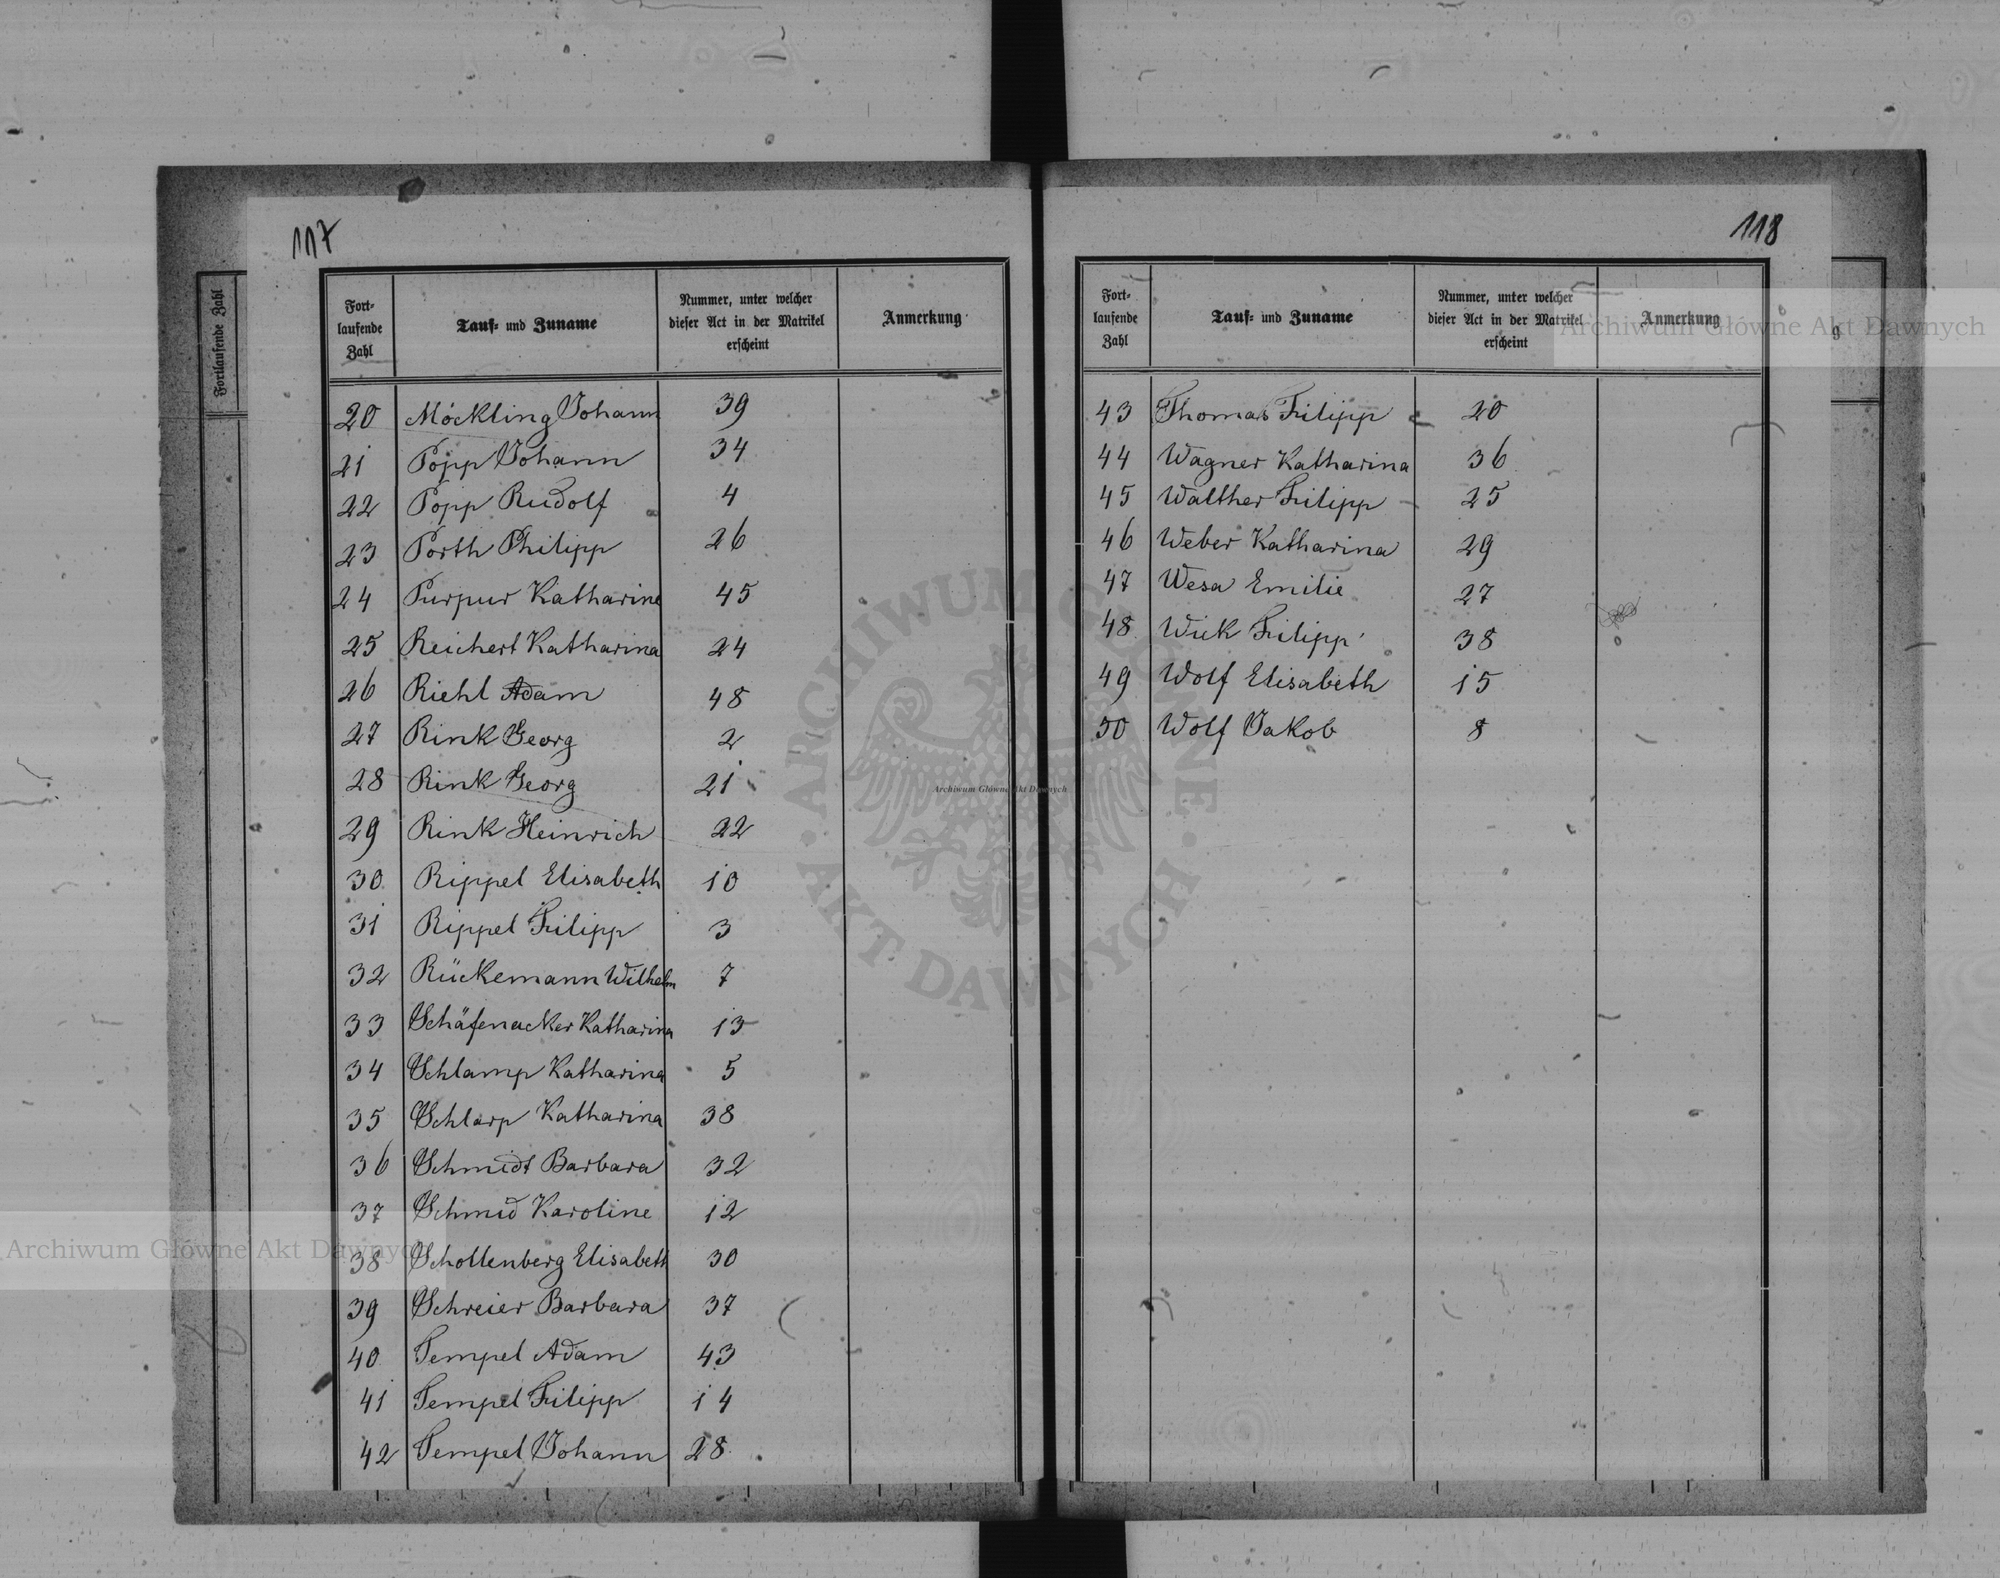 117
Fort-
laufende
Zahl
Tauf- und Zuname
Nummer, unter welcher
dieser Act in der Matrikel
erscheint
Anmerkung
20 Möckling Johann 39
21 Popp Johann 34
22 Popp Rudolf 4
23 Porth Philipp 26
24 Purpur Katharine 45
25 Reichert Katharina 24
26 Riehl Adam 48
27 Rink Georg 2
28 Rink Georg 21
29 Rink Heinrich 22
30 Rippel Elisabeth 10
31 Rippel Filipp 3
32 Rückemann Wilhelm 7
33 Schäfenacker Katharina 13
34 Schlamp Katharina 5
35 Schlarp Katharina 38
36 Schmidt Barbara 32
37 Schmid Karoline 12
38 Schollenberg Elisabeth 30
39 Schreier Barbara 37
40 Tempel Adam 43
41 Tempel Filipp 14
42 Tempel Johann 28
118
Fort-
laufende
Zahl
Tauf- und Zuname
Nummer, unter welcher
dieser Act in der Matrikel
erscheint
Anmerkung
43 Thomas Filipp 20
44 Wagner Katharina 36
45 Walther Filipp 25
46 Weber Katharina 29
47 Wesa Emilie 27
48 Wick Filipp 38
49 Wolf Elisabeth 15
50 Wolf Jakob 8
Fortlaufende Zahl
g
Archiwum Główne Akt Dawnych
Archiwum Główne Akt Dawnych
Archiwum Główne Akt Dawnych
ARCHIWUM GŁÓWNE · AKT DAWNYCH ·